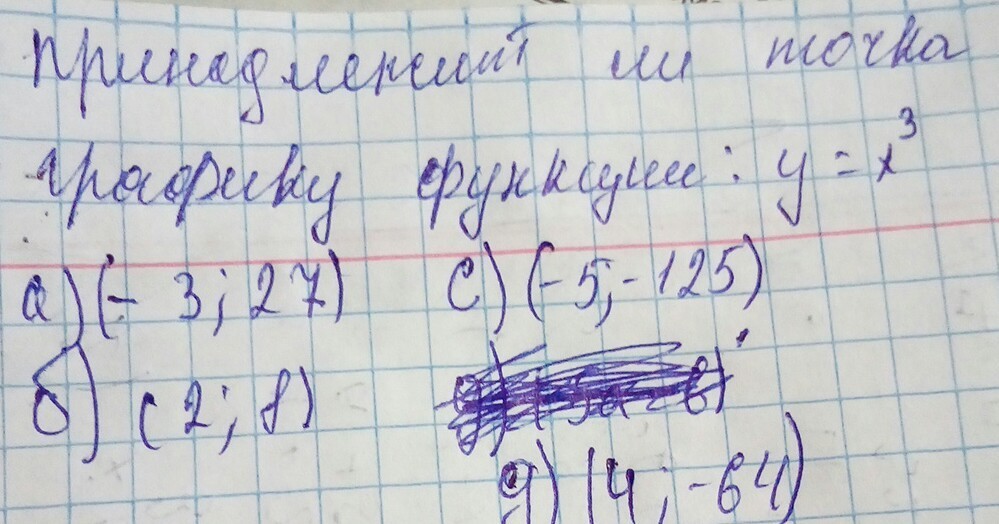 Принадлежит ли точка
графику функции: y = x³
а) (- 3; 27) с) (-5; -125)
б) (2; 8)
д) (4; -64)